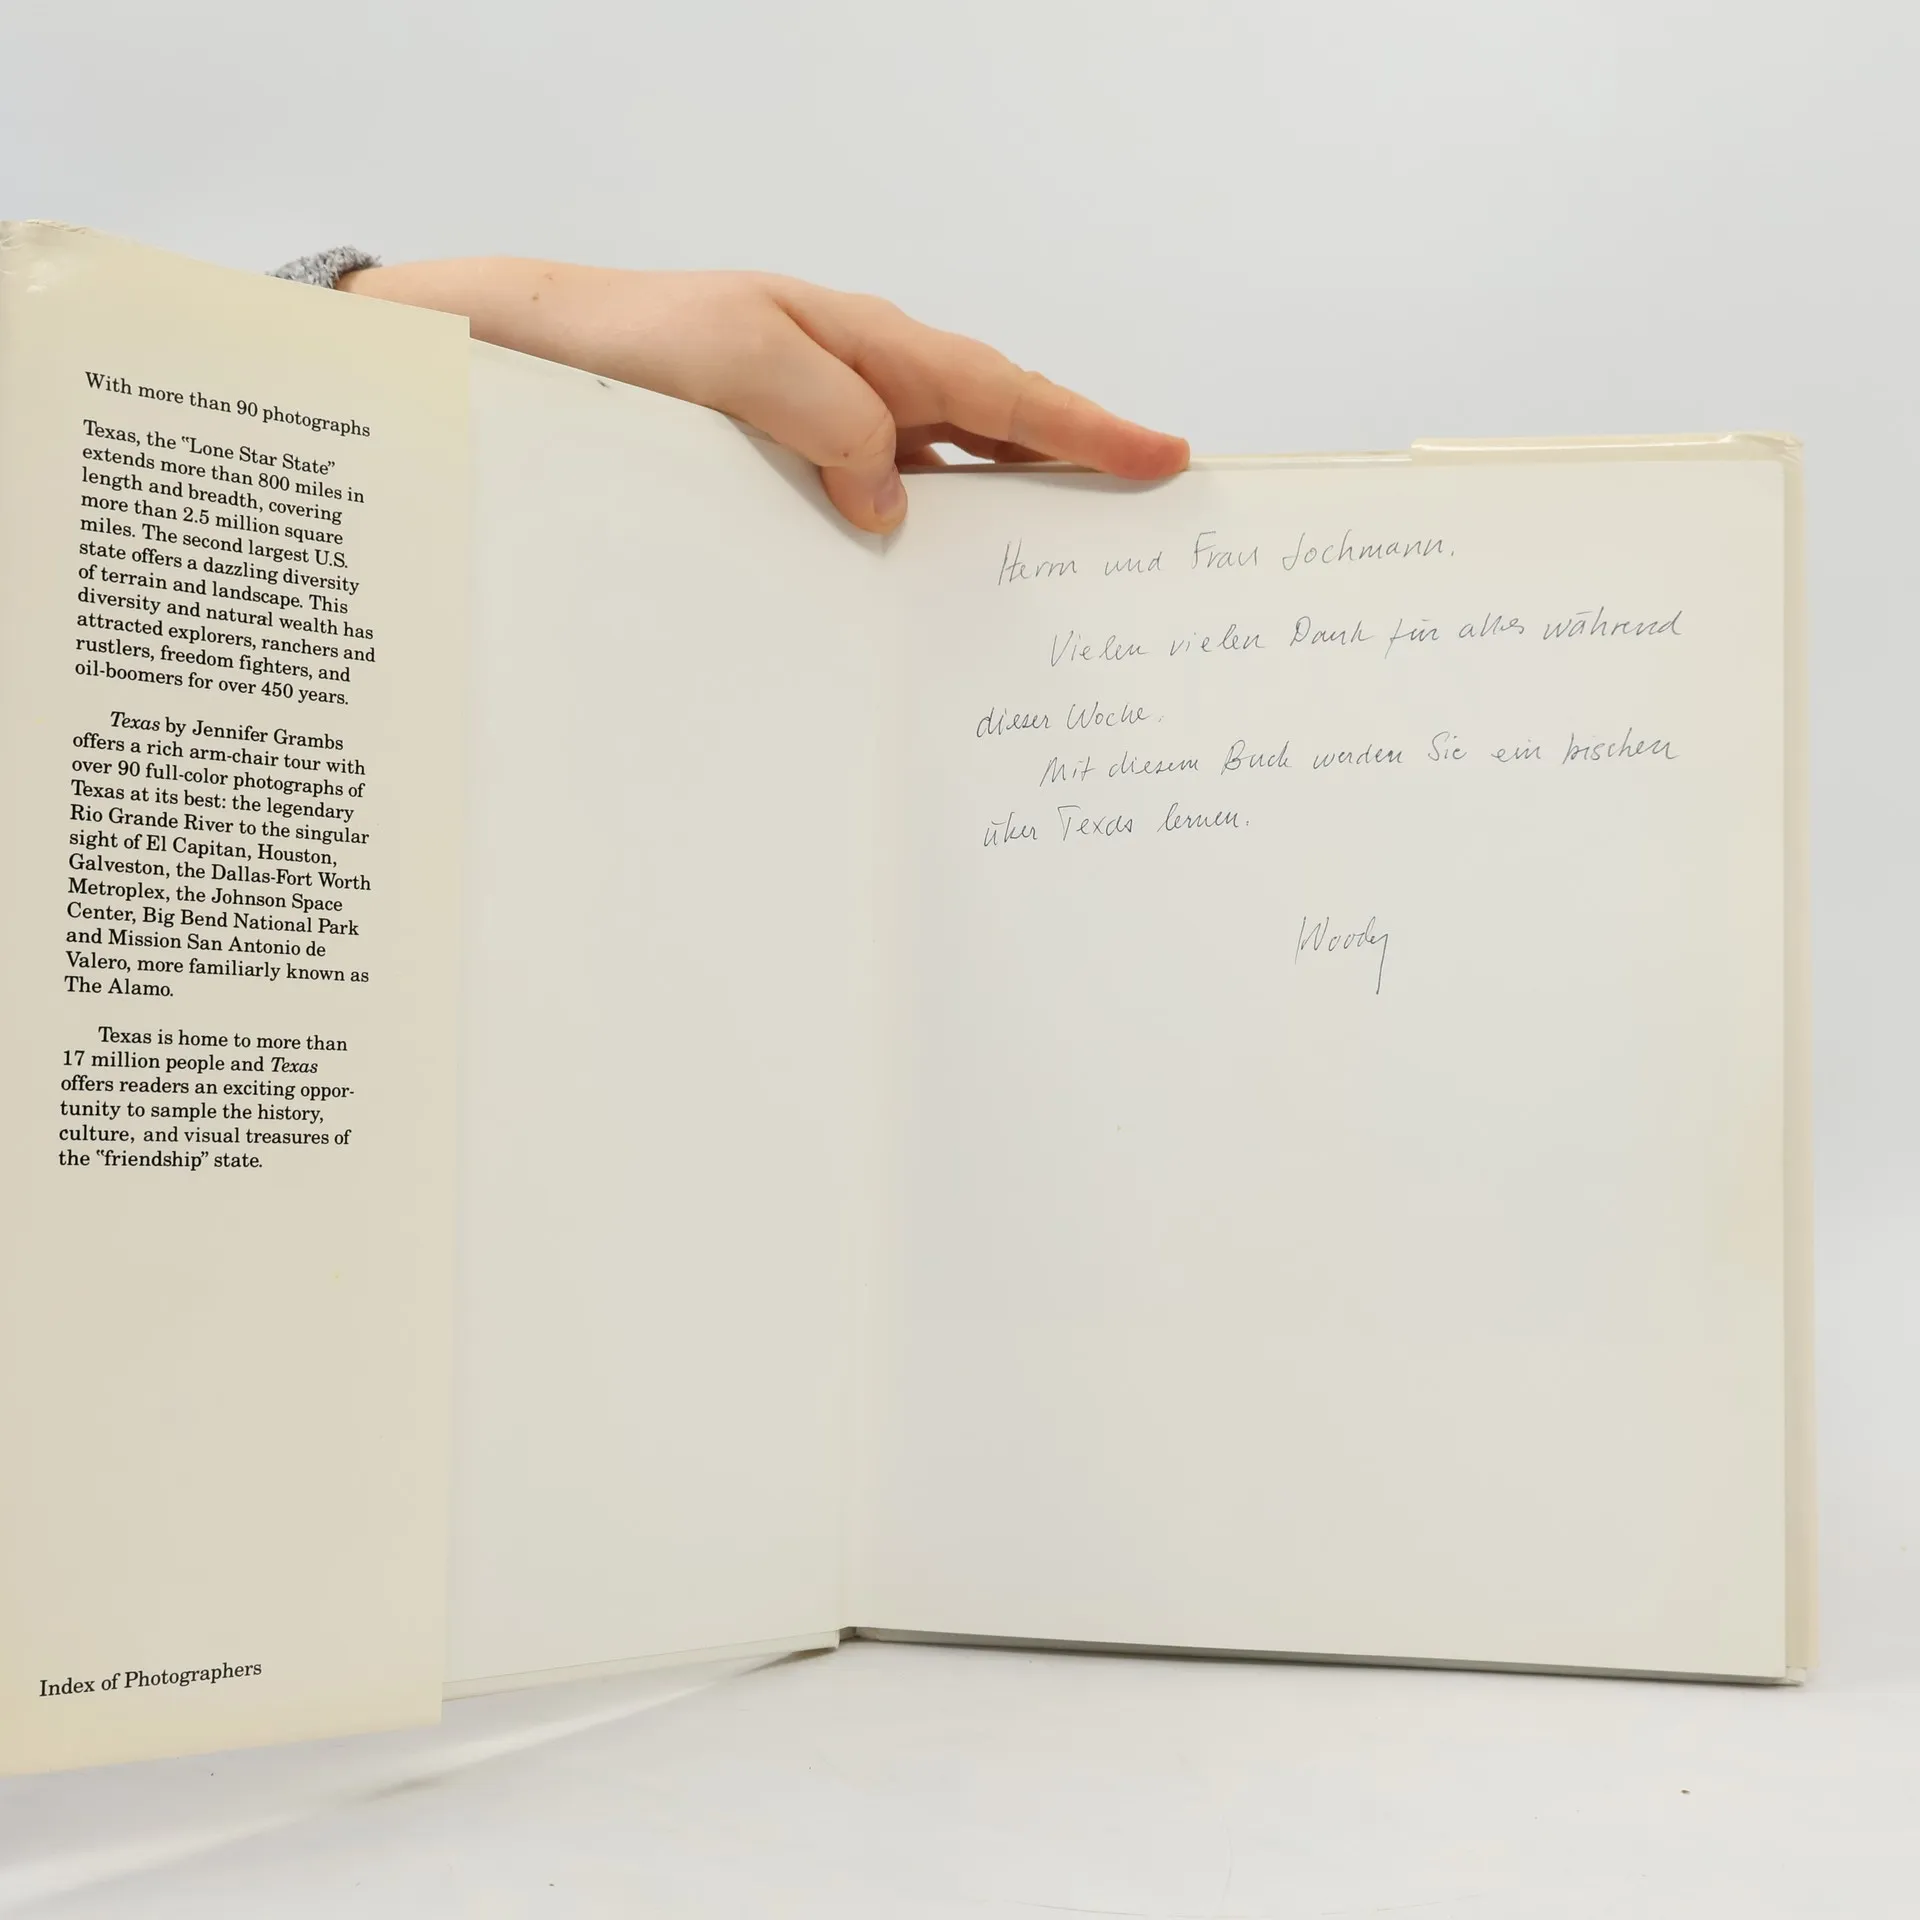 With more than 90 photographs
Texas, the "Lone Star State"
extends more than 800 miles in
length and breadth, covering
more than 2.5 million square
miles. The second largest U.S.
state offers a dazzling diversity
of terrain and landscape. This
diversity and natural wealth has
attracted explorers, ranchers and
rustlers, freedom fighters, and
oil-boomers for over 450 years.
Texas by Jennifer Grambs
offers a rich arm-chair tour with
over 90 full-color photographs of
Texas at its best: the legendary
Rio Grande River to the singular
sight of El Capitan, Houston,
Galveston, the Dallas-Fort Worth
Metroplex, the Johnson Space
Center, Big Bend National Park
and Mission San Antonio de
Valero, more familiarly known as
The Alamo.
Texas is home to more than
17 million people and Texas
offers readers an exciting oppor-
tunity to sample the history,
culture, and visual treasures of
the "friendship" state.
Index of Photographers
Herrn und Frau Jochmann.
Vielen vielen Dank für alles während
dieser Woche.
Mit diesem Buch werden Sie ein bischen
über Texas lernen.
Woody